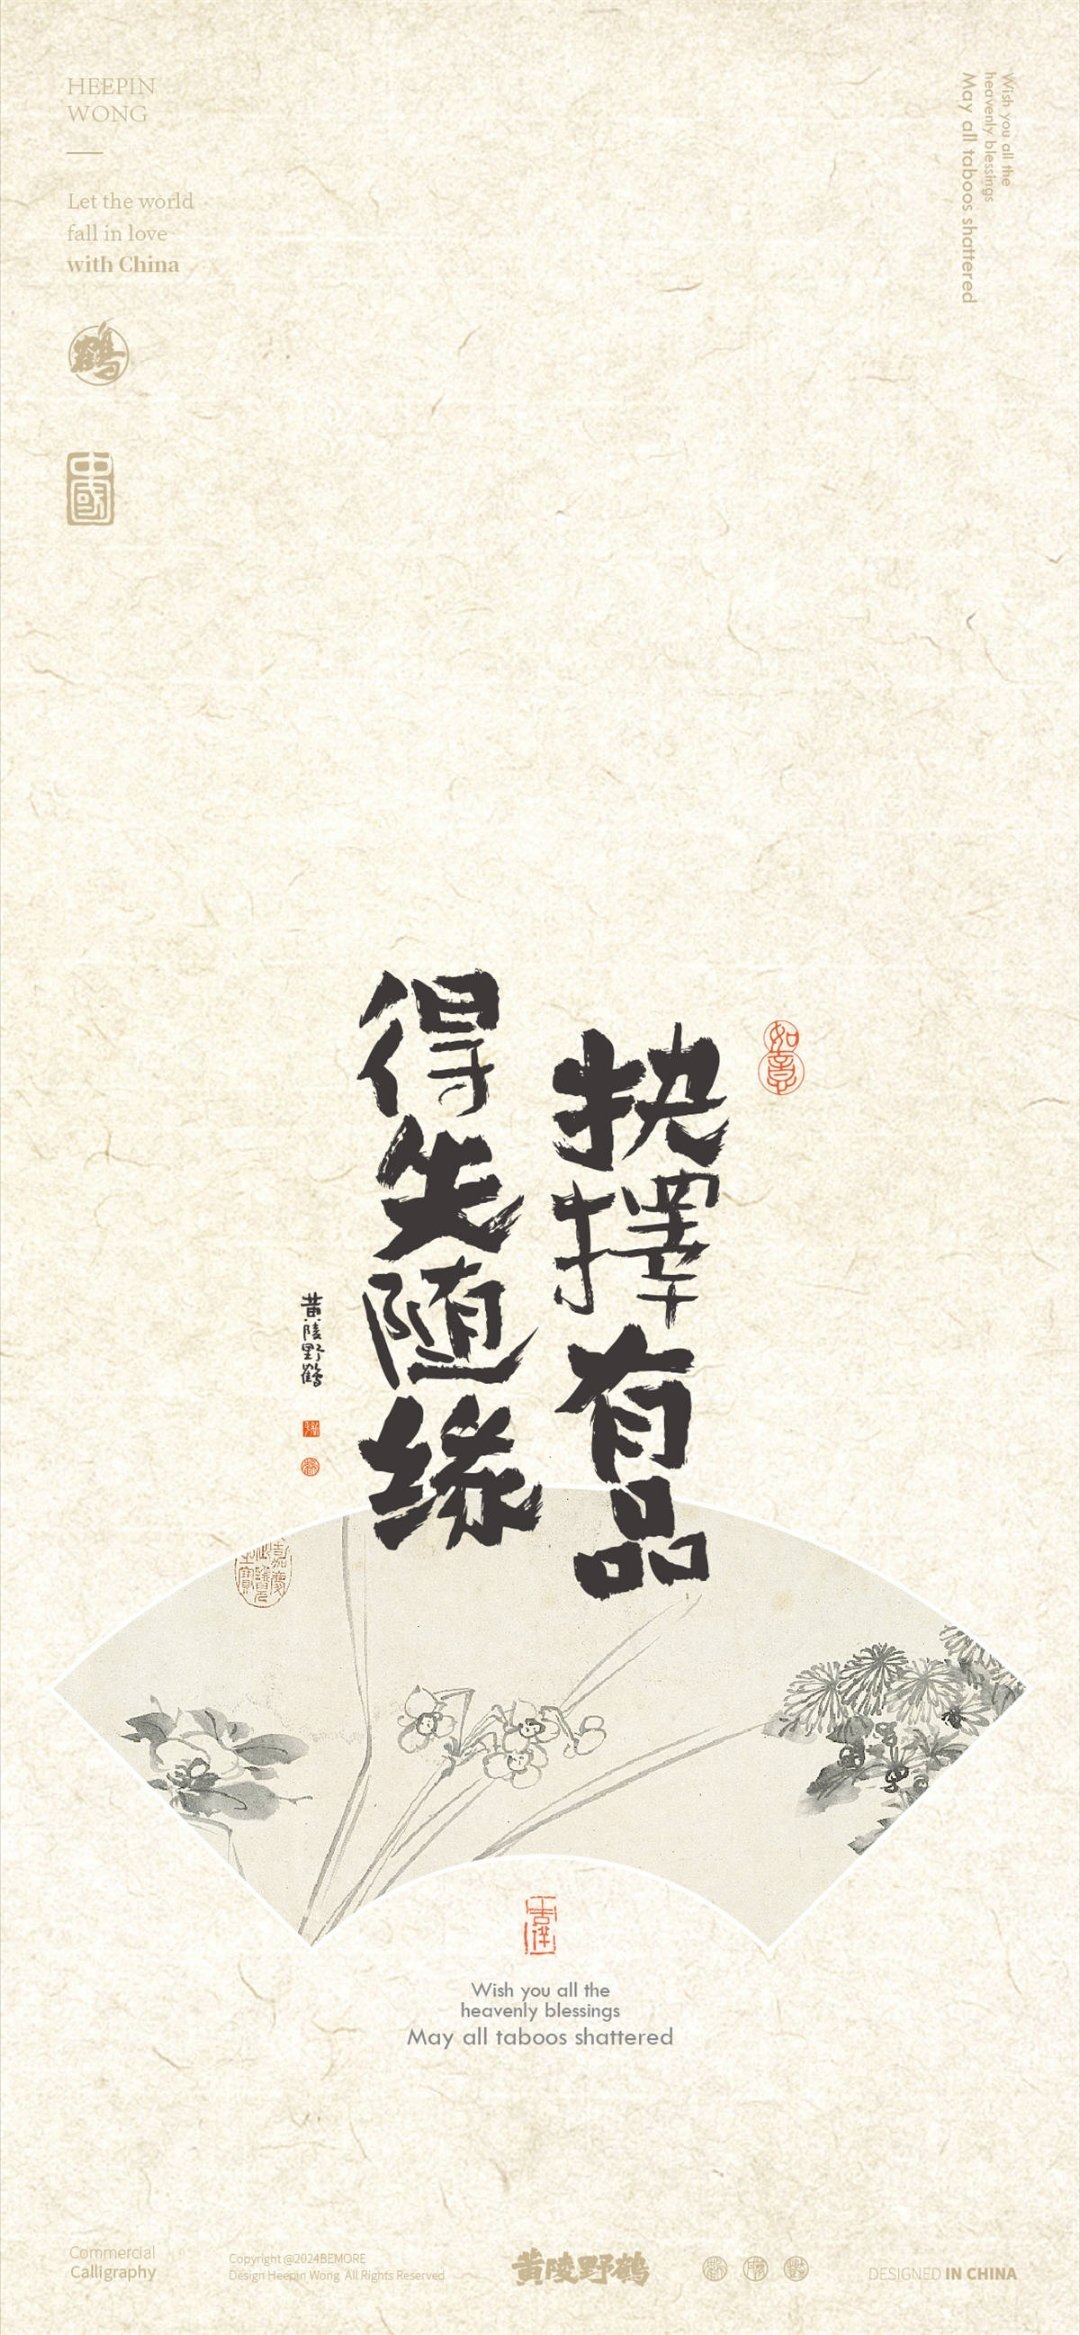 HEEPIN
WONG
Let the world
fall in love
with China
鶴
中國
Wish you all the
heavenly blessings
May all taboos shattered
如意
抉擇有品
得失随缘
黄陵野鹤
Wish you all the
heavenly blessings
May all taboos shattered
Commercial
Calligraphy
Copyright @2024BEMORE
Design Heepin Wong All Rights Reserved
黄陵野鹤
DESIGNED IN CHINA